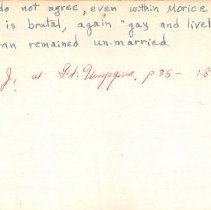 do not agree, even within Morice
is brutal, again "gay and livel
nn remained unmarried
J. at Ft. p 35 - 18